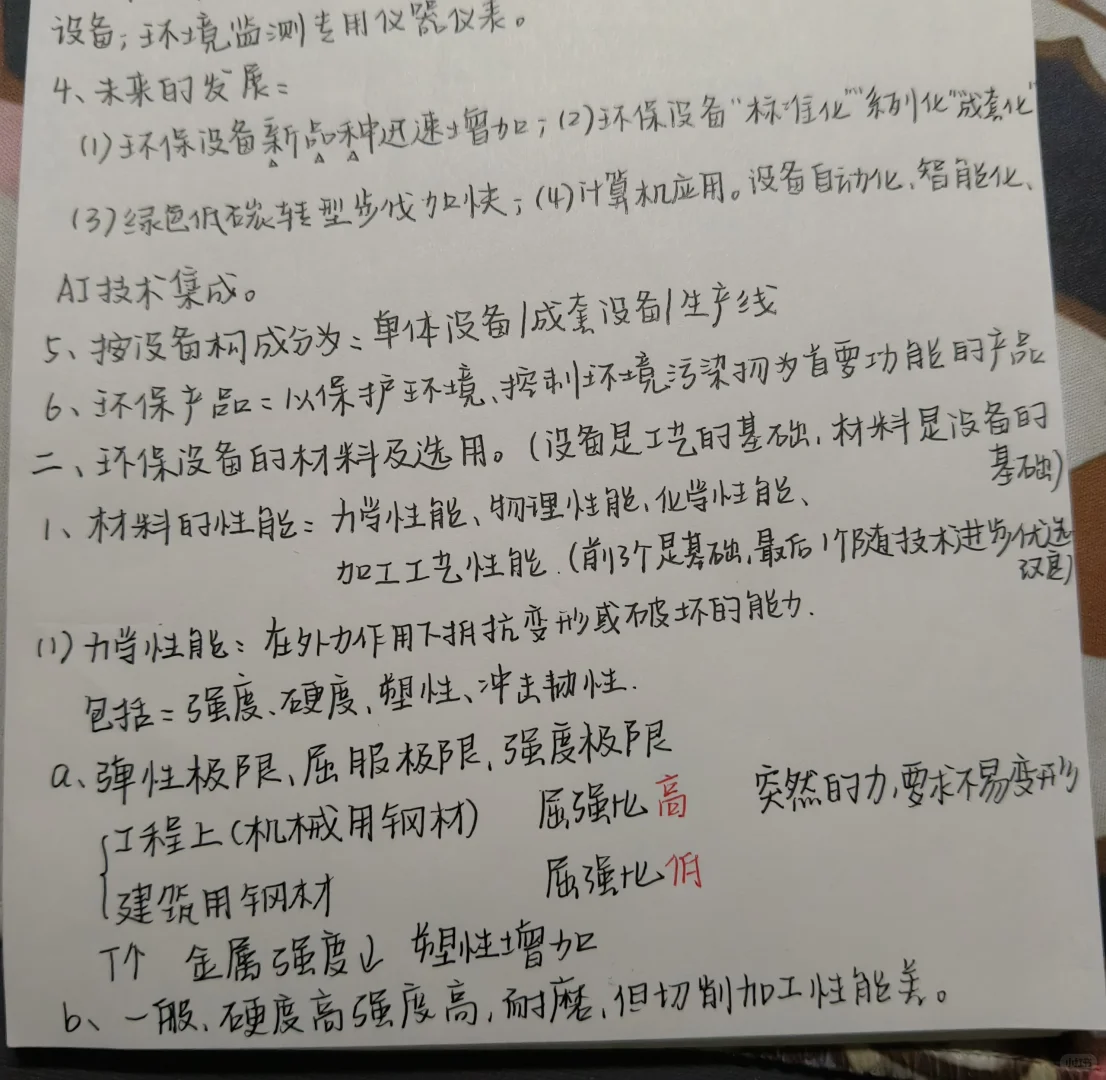 设备；环境监测专用仪器仪表。
4、未来的发展：
(1)环保设备新品种迅速增加；(2)环保设备“标准化”“系列化”“成套化”
(3)绿色低碳转型步伐加快；(4)计算机应用。设备自动化、智能化、
AI技术集成。
5、按设备构成分为：单体设备/成套设备/生产线
6、环保产品：以保护环境、控制环境污染物为首要功能的产品
二、环保设备的材料及选用。(设备是工艺的基础，材料是设备的
基础)
1、材料的性能：力学性能、物理性能、化学性能、
加工工艺性能.(前3个是基础，最后1个随技术进步优选
改良)
(1)力学性能：在外力作用下抵抗变形或破坏的能力.
包括：强度、硬度、塑性、冲击韧性.
a、弹性极限、屈服极限、强度极限
工程上(机械用钢材) 屈强比高 突然的力，要求不易变形
建筑用钢材 屈强比低
T↑ 金属强度↓ 塑性增加
b、一般，硬度高强度高，耐磨，但切削加工性能差。